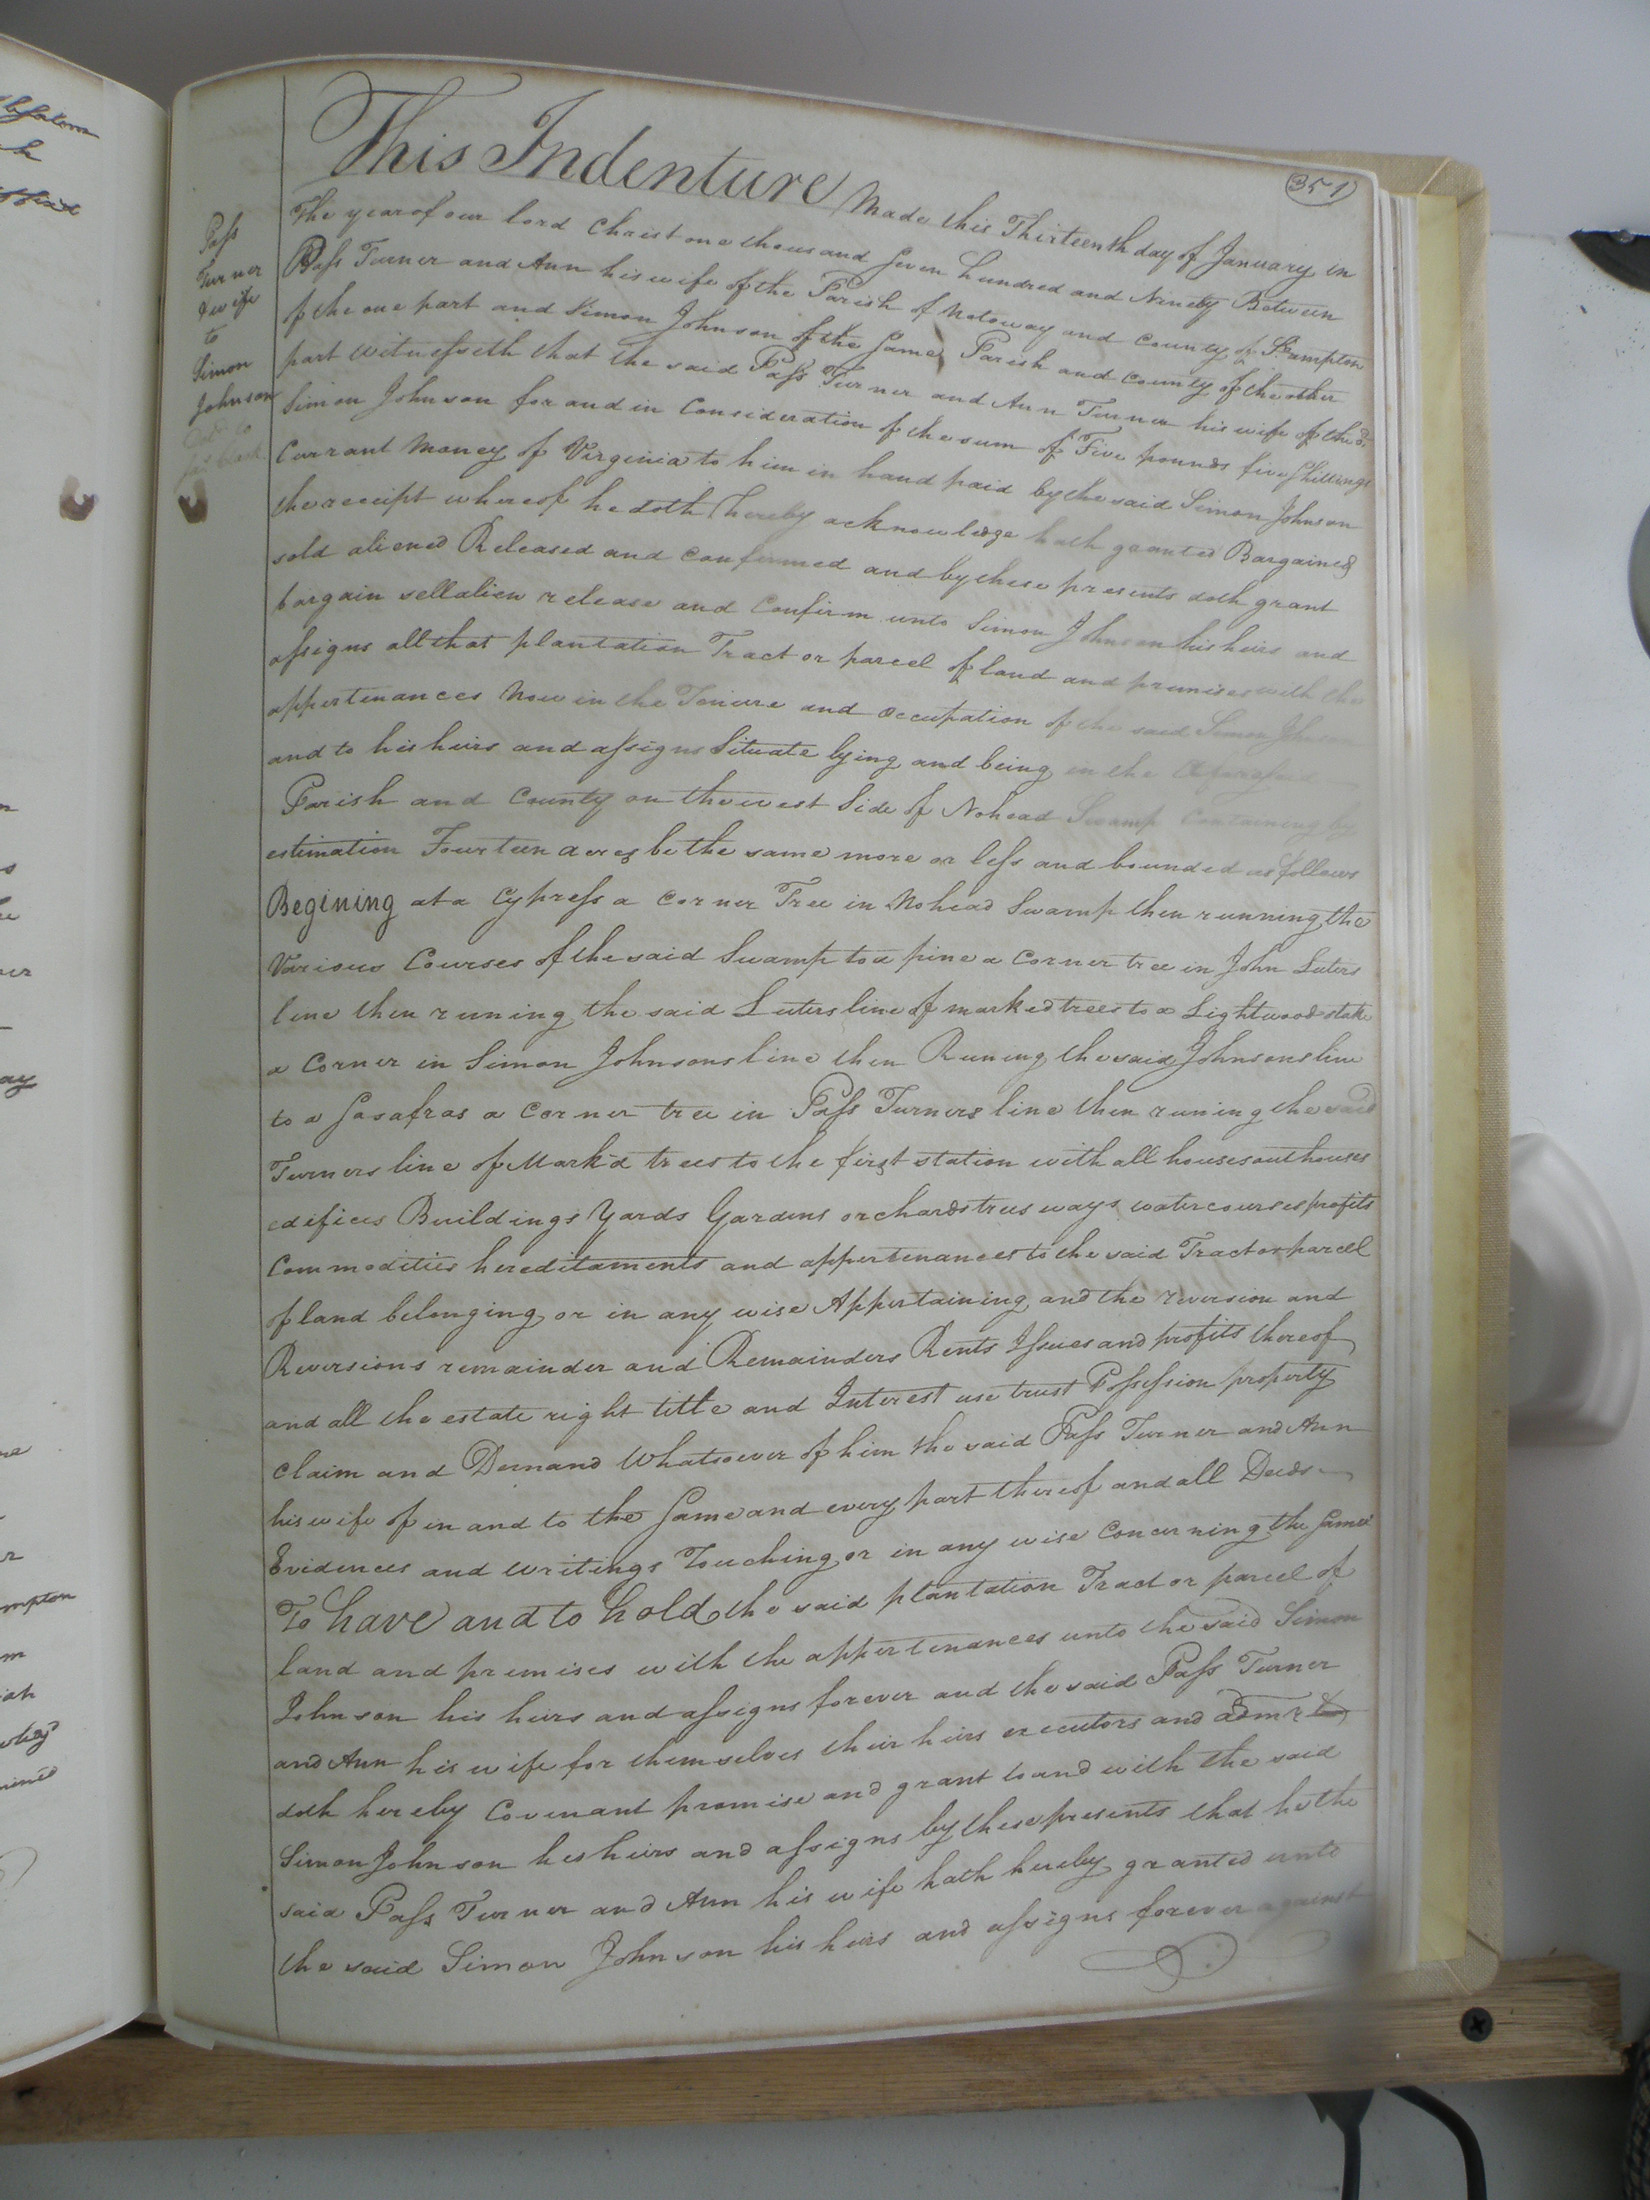 351
This Indenture Made this Thirteenth day of January in
The year of our lord Christ one thousand Seven hundred and Ninety Between
Pass Turner and Ann his wife of the Parish of Notoway and County of S:hampton
of the one part and Simon Johnson of the Same Parish and County of the other
part witnesseth that the said Pass Turner and Ann Turner his wife of the sd.
Simon Johnson for and in Consideration of the sum of Five pounds five Shillings
Currant Money of Virginia to him in hand paid by the said Simon Johnson
the receipt whereof he doth hereby acknowledge hath granted Bargained
sold aliened Released and Confirmed and by these presents doth grant
bargain sell alien release and Confirm unto Simon Johnson his heirs and
assigns all that plantation Tract or parcel of land and premises with the
appertenances Now in the Tenure and occupation of the said Simon Johnson
and to his heirs and assigns Situate lying and being in the Aforesaid
Parish and County on the west Side of Nohead Swamp Containing by
estimation Fourteen acres be the same more or less and bounded as follows
Begining at a Cypress a Corner Tree in Nohead Swamp then running the
Various Courses of the said Swamp to a pine a Corner tree in John Luters
line then runing the said Luters line of marked trees to a Lightwood stake
a Corner in Simon Johnsons line then Runing the said Johnsons line
to a Sasafras a Corner tree in Pass Turners line then runing the said
Turners line of Mark'd trees to the first station with all houses outhouses
edifices Buildings Yards Gardens orchards trees ways watercourses profits
Commodities hereditaments and appertenances to the said Tract or parcell
of land belonging or in any wise Appertaining and the reversion and
Reversions remainder and Remainders Rents Issues and profits thereof
and all the estate right title and Interest use trust Possession property
Claim and Demand Whatsoever of him the said Pass Turner and Ann
his wife of in and to the Same and every part thereof and all Deeds
Evidences and writings Touching or in any wise Concerning the Same
To have and to hold the said plantation Tract or parcel of
land and premises with the appertenances unto the said Simon
Johnson his heirs and assigns forever and the said Pass Turner
and Ann his wife for themselves their heirs executors and admrs
doth hereby Covenant promise and grant to and with the said
Simon Johnson his heirs and assigns by these presents that he the
said Pass Turner and Ann his wife hath hereby granted unto
the said Simon Johnson his heirs and assigns forever against
Pass
Turner
& wife
to
Simon
Johnson